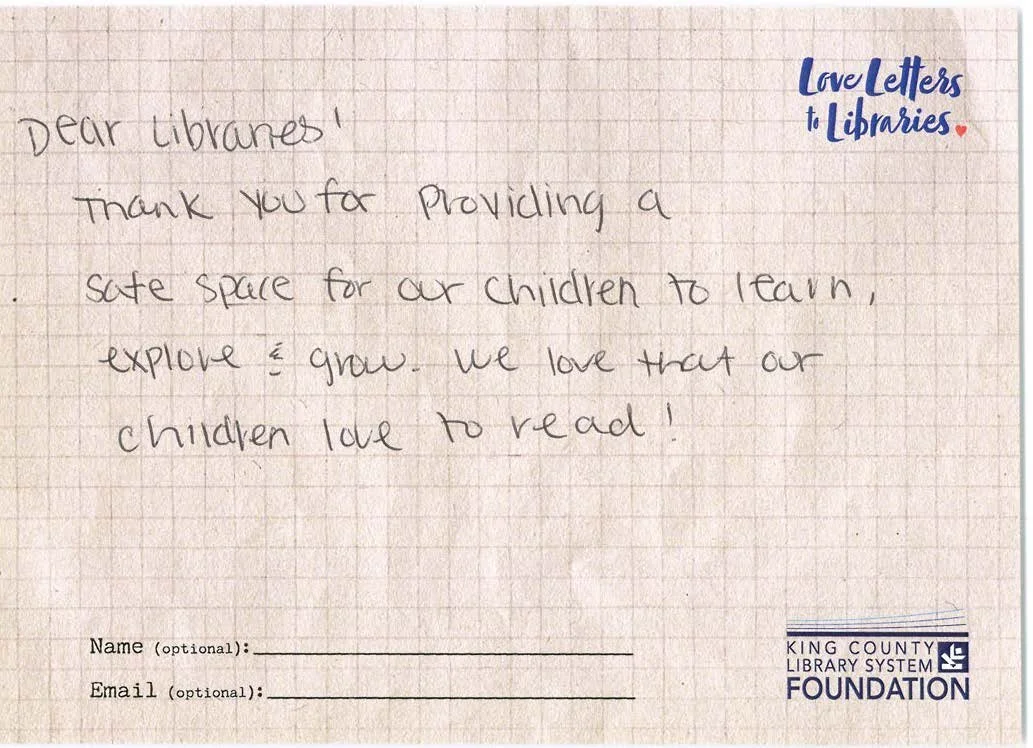 Love Letters
to Libraries.
Dear Libraries!
Thank you for providing a
safe space for our children to learn,
explore & grow. We love that our
children love to read!
Name (optional):
Email (optional):
KING COUNTY
LIBRARY SYSTEM
FOUNDATION